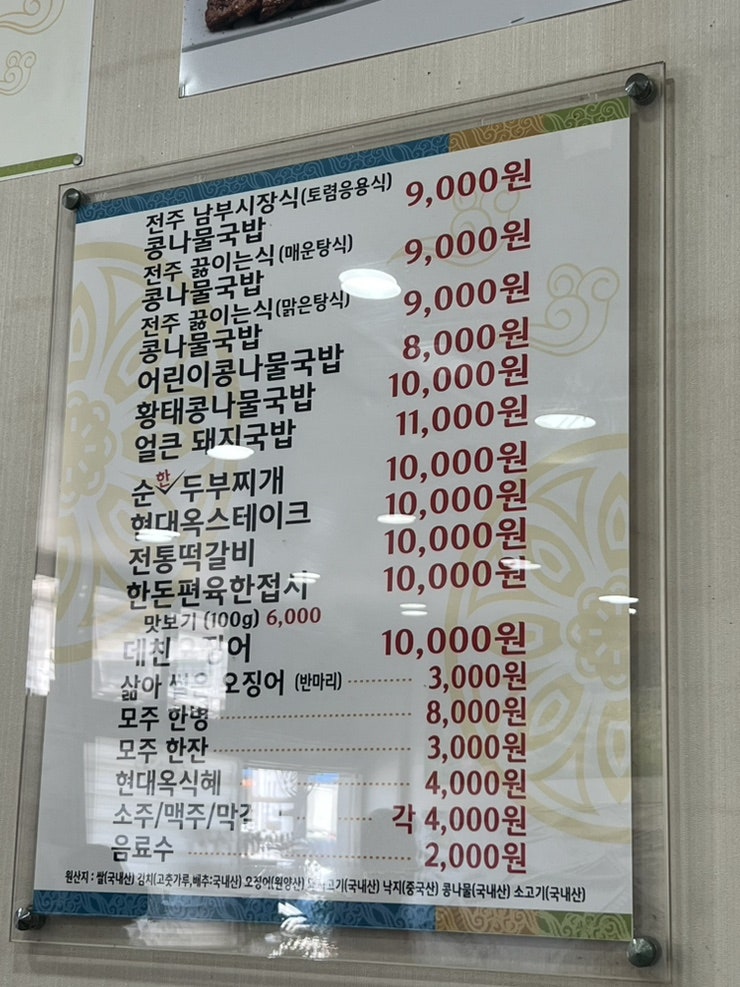 전주 남부시장식(토렴응용식) 9,000원
콩나물국밥
전주 끓이는식(매운탕식) 9,000원
콩나물국밥
전주 끓이는식(맑은탕식) 9,000원
콩나물국밥
어린이콩나물국밥 8,000원
황태콩나물국밥 10,000원
얼큰 돼지국밥 11,000원
순 한 두부찌개 10,000원
현대옥스테이크 10,000원
전통떡갈비 10,000원
한돈편육한접시 10,000원
맛보기 (100g) 6,000
데친오징어 10,000원
삶아 썰은 오징어 (반마리) 3,000원
모주 한병 8,000원
모주 한잔 3,000원
현대옥식혜 4,000원
소주/맥주/막걸 각 4,000원
음료수 2,000원
원산지 : 쌀(국내산) 김치(고춧가루,배추:국내산) 오징어(원양산) 돼지고기(국내산) 낙지(중국산) 콩나물(국내산) 소고기(국내산)